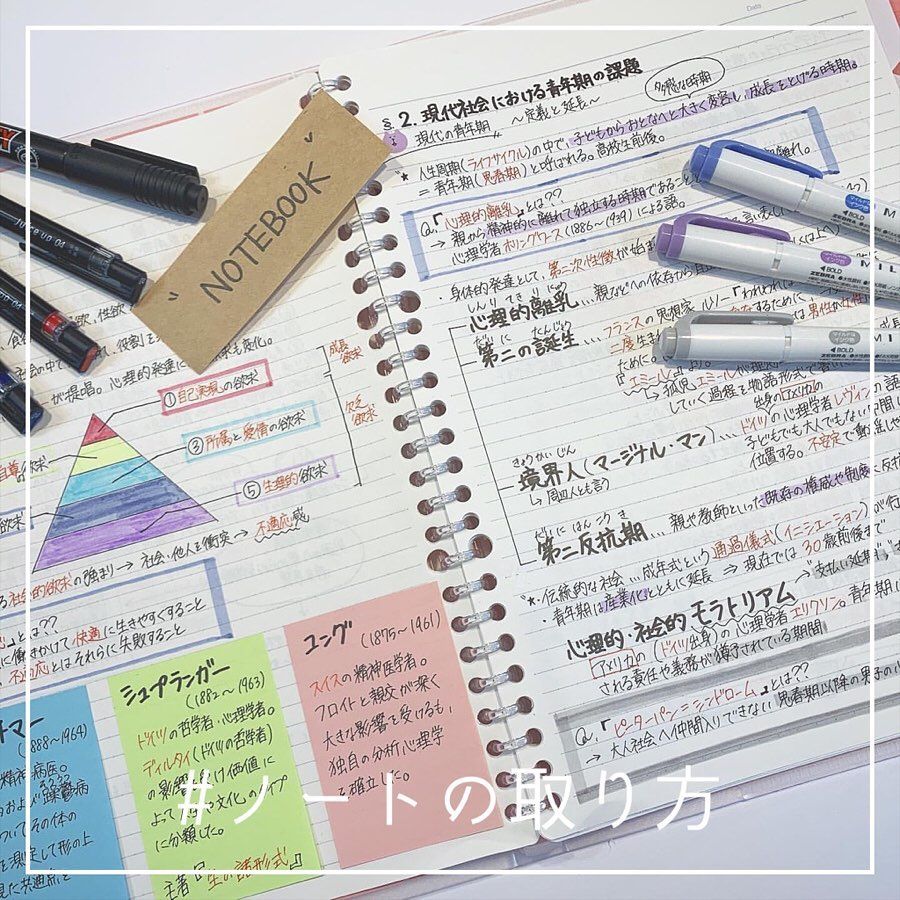 Data
§2. 現代社会における青年期の課題
現代の青年期 〜定義と延長〜
多感な時期
* 人生周期(ライフサイクル)の中で、子どもからおとなへと大きく変容し、成長をとげる時期。
= 青年期(思春期)と呼ばれる。高校生前後。
Q.「心理的離乳」とは??
→ 親から精神的に離れて独立する時期であること
心理学者ホリングワース(1886〜1939)による語。
・身体的発達として、第二次性徴が始ま
しんりてきりにゅう
心理的離乳…親などへの依存から自
だいにたんじょう
第二の誕生…フランスの思想家ルソー「われわれは
二度生ま
ために。
『エミール』より。
→孤児エミールが
していく過程を物語形式で書いた
出身のアメリカの
きょうかいじん
境界人(マージナル・マン)…ドイツの心理学者レヴィンの語
→周辺人とも言う
子どもでも大人でもない中間に
位置する。不安定で動揺しや
だいにはんこうき
第二反抗期…親や教師といった既存の権威や制度に反抗
*・伝統的な社会…成年式という通過儀式(イニシエーション)が行
・青年期は産業化とともに延長 ⇒ 現在では30歳前後まで
心理的・社会的モラトリアム→"支払い延期"
アメリカの(ドイツ出身)の心理学者エリクソン。青年期に
される責任や義務が猶予されている期間
Q.「ピーターパン=シンドローム」とは??
→ 大人社会へ仲間入りできない思春期以降の男子の心
" NOTEBOOK "
Juice up 04
BOLD
ZEBRA
MIL
BOLD
ZEBRA
MIL
BOLD
ZEBRA
MIL
性欲
役割を
が提唱。心理的発達に
も変化。
成長欲求
欠乏欲求
①自己実現の欲求
自尊の欲求
③所属と愛情の欲求
⑤生理的欲求
社会的欲求の強まり→社会・他人と衝突→不適応感
とは??
に働きかけて快適に生きやすくすること
不適応とはそれらに失敗すること
(1888〜1964)
精神病医。
躁鬱病
ついてその体の
シュプランガー
(1882〜1963)
ドイツの哲学者・心理学者。
ディルタイ(ドイツの哲学者)
の影響を受け価値に
よって人々の文化のタイプ
に分類した。
主著『生の諸形式』
ユング
(1875〜1961)
スイスの精神医学者。
フロイトと親交が深く
大きな影響を受けるも、
独自の分析心理学
を確立した。
#ノートの取り方